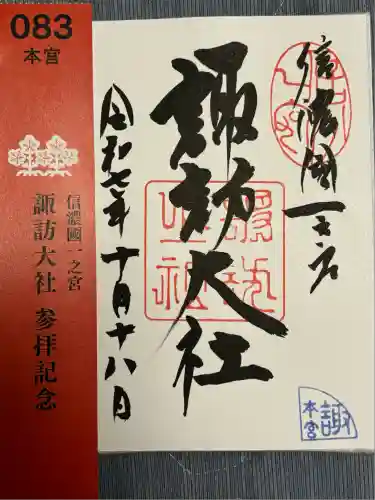 083
本宮
信濃國一之宮
諏訪大社 参拝記念
信濃國一之宮
諏訪大社
令和七年十月十八日
諏訪
本宮